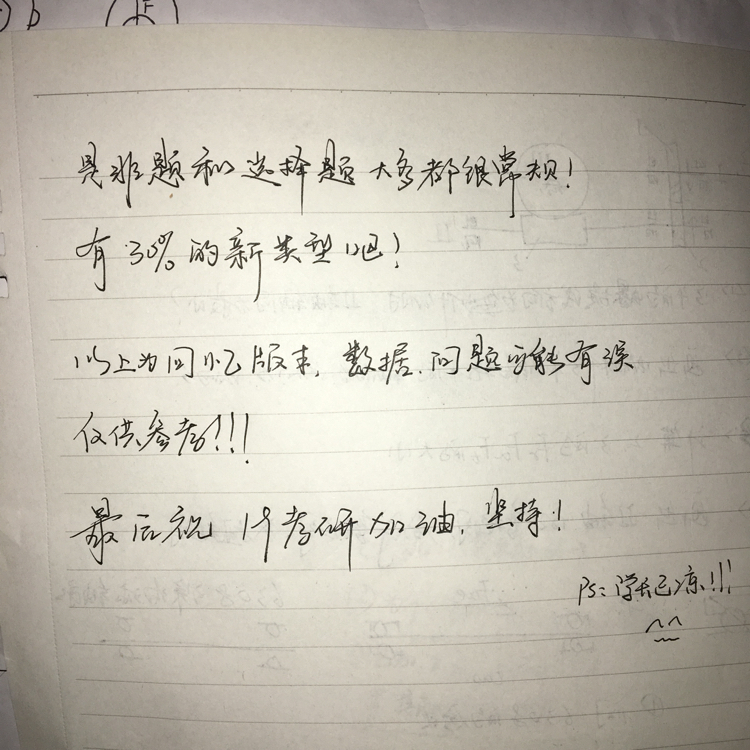 b
是非题和选择题大多都很常规!
有30%的新类型吧!
以上为回忆版本,数据、问题可能有误
仅供参考!!!
最后祝19考研加油,坚持!
PS:学长已凉!!!